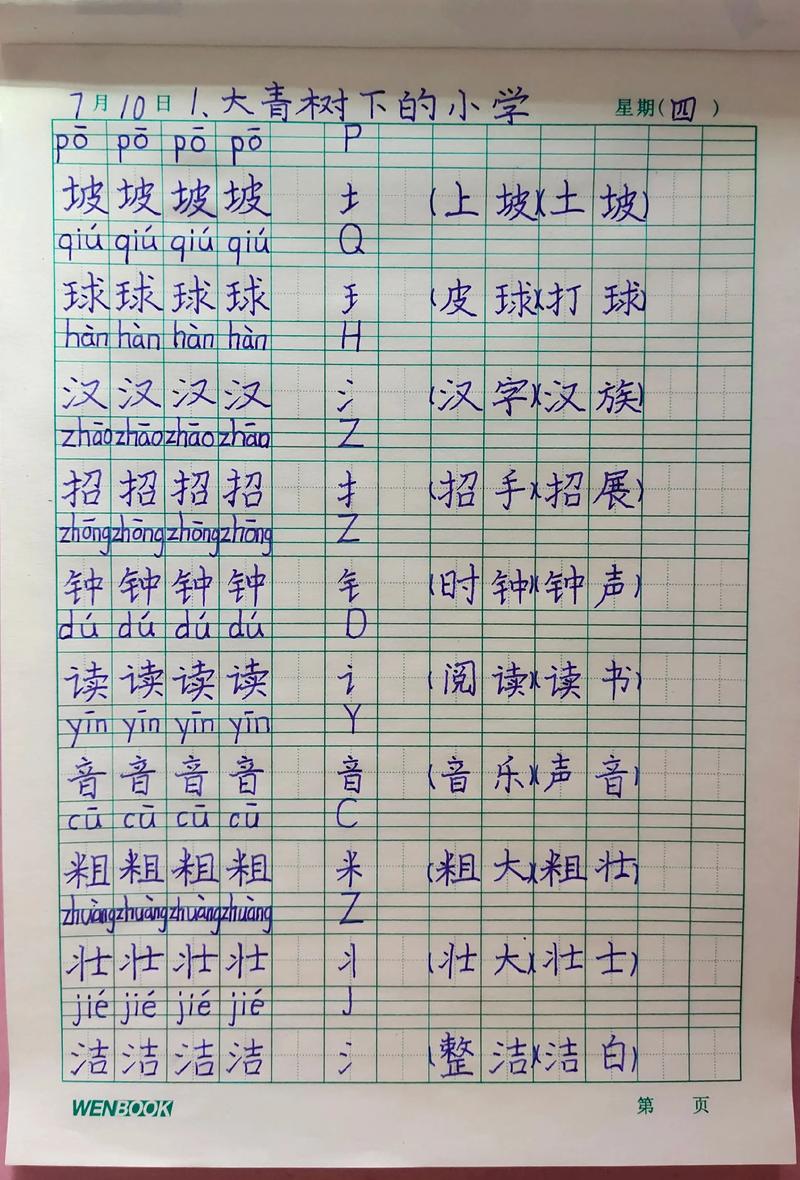 7月10日 1、大青树下的小学 星期(四)
pō pō pō pō P
坡 坡 坡 坡 土 (上坡)(土坡)
qiú qiú qiú qiú Q
球 球 球 球 王 (皮球)(打球)
hàn hàn hàn hàn H
汉 汉 汉 汉 氵 (汉字)(汉族)
zhāo zhāo zhāo zhāo Z
招 招 招 招 扌 (招手)(招展)
zhōng zhōng zhōng zhōng Z
钟 钟 钟 钟 钅 (时钟)(钟声)
dú dú dú dú D
读 读 读 读 讠 (阅读)(读书)
yīn yīn yīn yīn Y
音 音 音 音 音 (音乐)(声音)
cū cū cū cū C
粗 粗 粗 粗 米 (粗大)(粗壮)
zhuàng zhuàng zhuàng zhuàng Z
壮 壮 壮 壮 丬 (壮大)(壮士)
jié jié jié jié J
洁 洁 洁 洁 氵 (整洁)(洁白)
WENBOOK 第 页